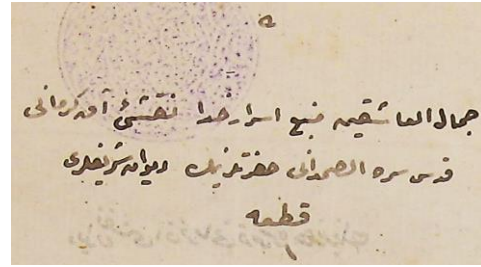 جمال العاشقين منبع اسرار خدا نقشئ آق كرمانى
قدس سره الصمدانى حضرتلرينك ديوان شريفلرى
قطعه